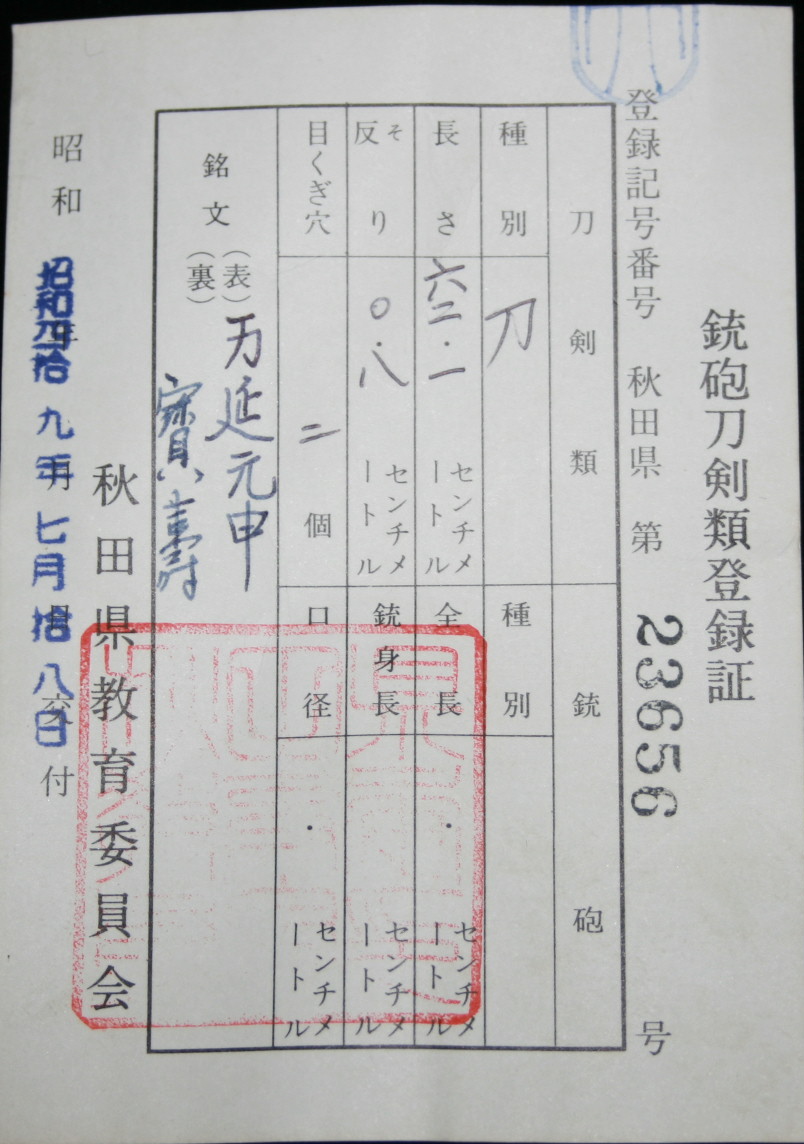 銃砲刀剣類登録証
登録記号番号 秋田県 第 23656 号
刀剣類 銃砲
種別 刀 種別
長さ 六二・一 センチメートル 全長 ・ センチメートル
反り そ 〇・八 センチメートル 銃身長 センチメートル
目くぎ穴 二 個 口径 ・ センチメートル
銘文 (表) 万延元申
(裏) 寶壽
秋田県教育委員会
昭和 昭和四拾九年七月拾八日 交付